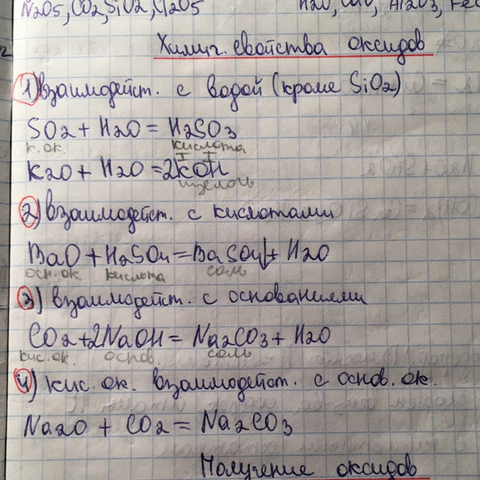 N2O5, CO2, SiO2, Cl2O5
Химич. свойства оксидов
1) взаимодейст. с водой (кроме SiO2)
SO2 + H2O = H2SO3
к.ок. кислота
K2O + H2O = 2KOH
щелочь
2) взаимодейст. с кислотами
BaO + H2SO4 = BaSO4↓ + H2O
осн.ок. кислота соль
3) взаимодейст. с основаниями
CO2 + 2NaOH = Na2CO3 + H2O
кис.ок. основ. соль
4) кис. ок. взаимодейст. с основ. ок.
Na2O + CO2 = Na2CO3
Получение оксидов